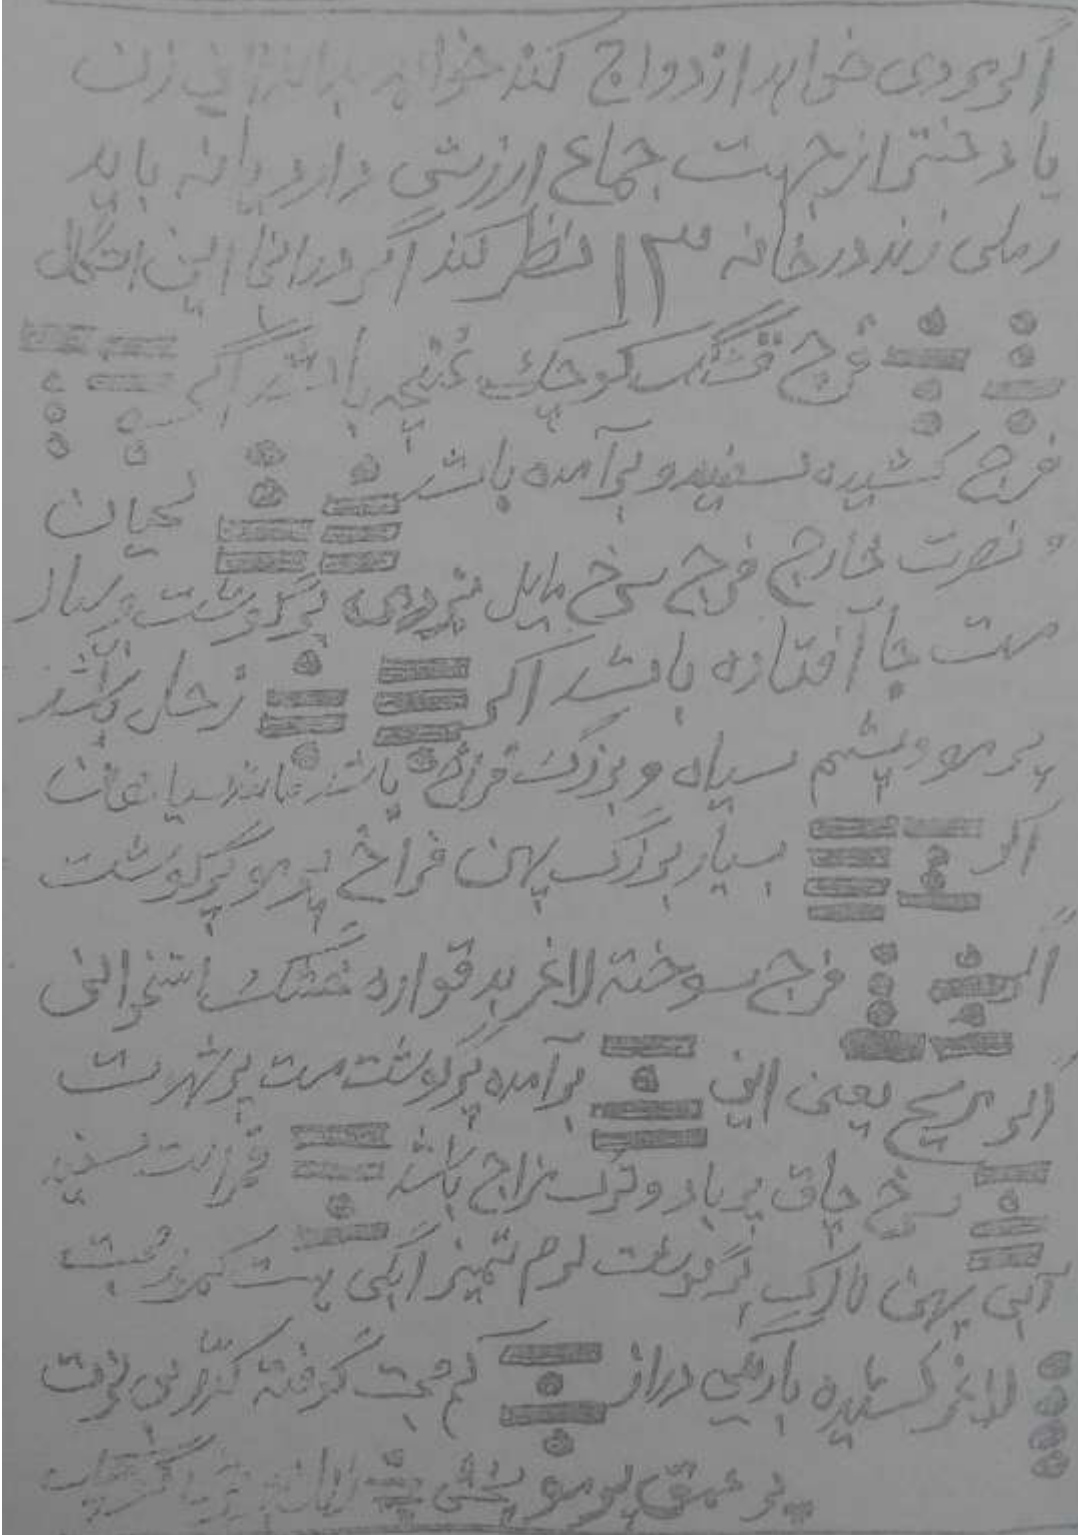 اگر مردی خواهد ازدواج کند خواهد بداند این زن
یا دختر از جهت جماع ارزشی دارد یا نه باید
رملی زند در خانه ۱۳ نظر کند اگر در انجا این اشکال
فرج قشنگ کوچک غنچه باشد اگر
فرج کشیده سفید و برآمده باشد لحیان
و نصرت خارج فرج سرخ مایل بزردی پرگوشت و بسیار
جا افتاده باشد اگر زحل باشد
پر مو و پشم سیاه و بزرگ فراخ باشد مانند سیاهان
اگر بسیار بزرگ پهن فراخ پر مو پرگوشت
اگر فرج سوخته لاغر بد قواره خشک استخوانی
اگر مریخ یعنی این برآمده پرگوشت پر شهوت
سرخ چاق پر باد و مزاج باشد سفید
آبی پهن نازک پرگوشت نرم تمیز آبکی
لاغر کشیده باریک دراز کم محبت گرفته
پر عمق پر مو